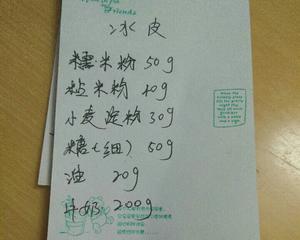 Friends
冰皮
糯米粉 50g
粘米粉 40g
小麦淀粉 30g
糖(细) 50g
油 20g
牛奶 200g